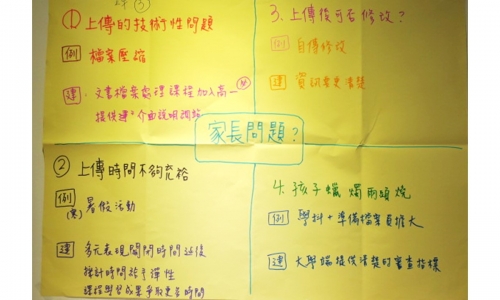 ① 上傳的技術性問題
例 檔案壓縮
建 . 文書檔案處理課程加入高一
提供建 介面說明
3. 上傳後可否修改?
例 自傳修改
建 資訊要更清楚
家長問題?
② 上傳時間不夠充裕
例 (寒)暑假活動
建 多元表現 時間延後
時間給予彈性
課程學習成果爭取更多時間
4. 孩子蠟燭兩頭燒
例 學科+準備檔案負擔大
建 大學端提供清楚的審查指標